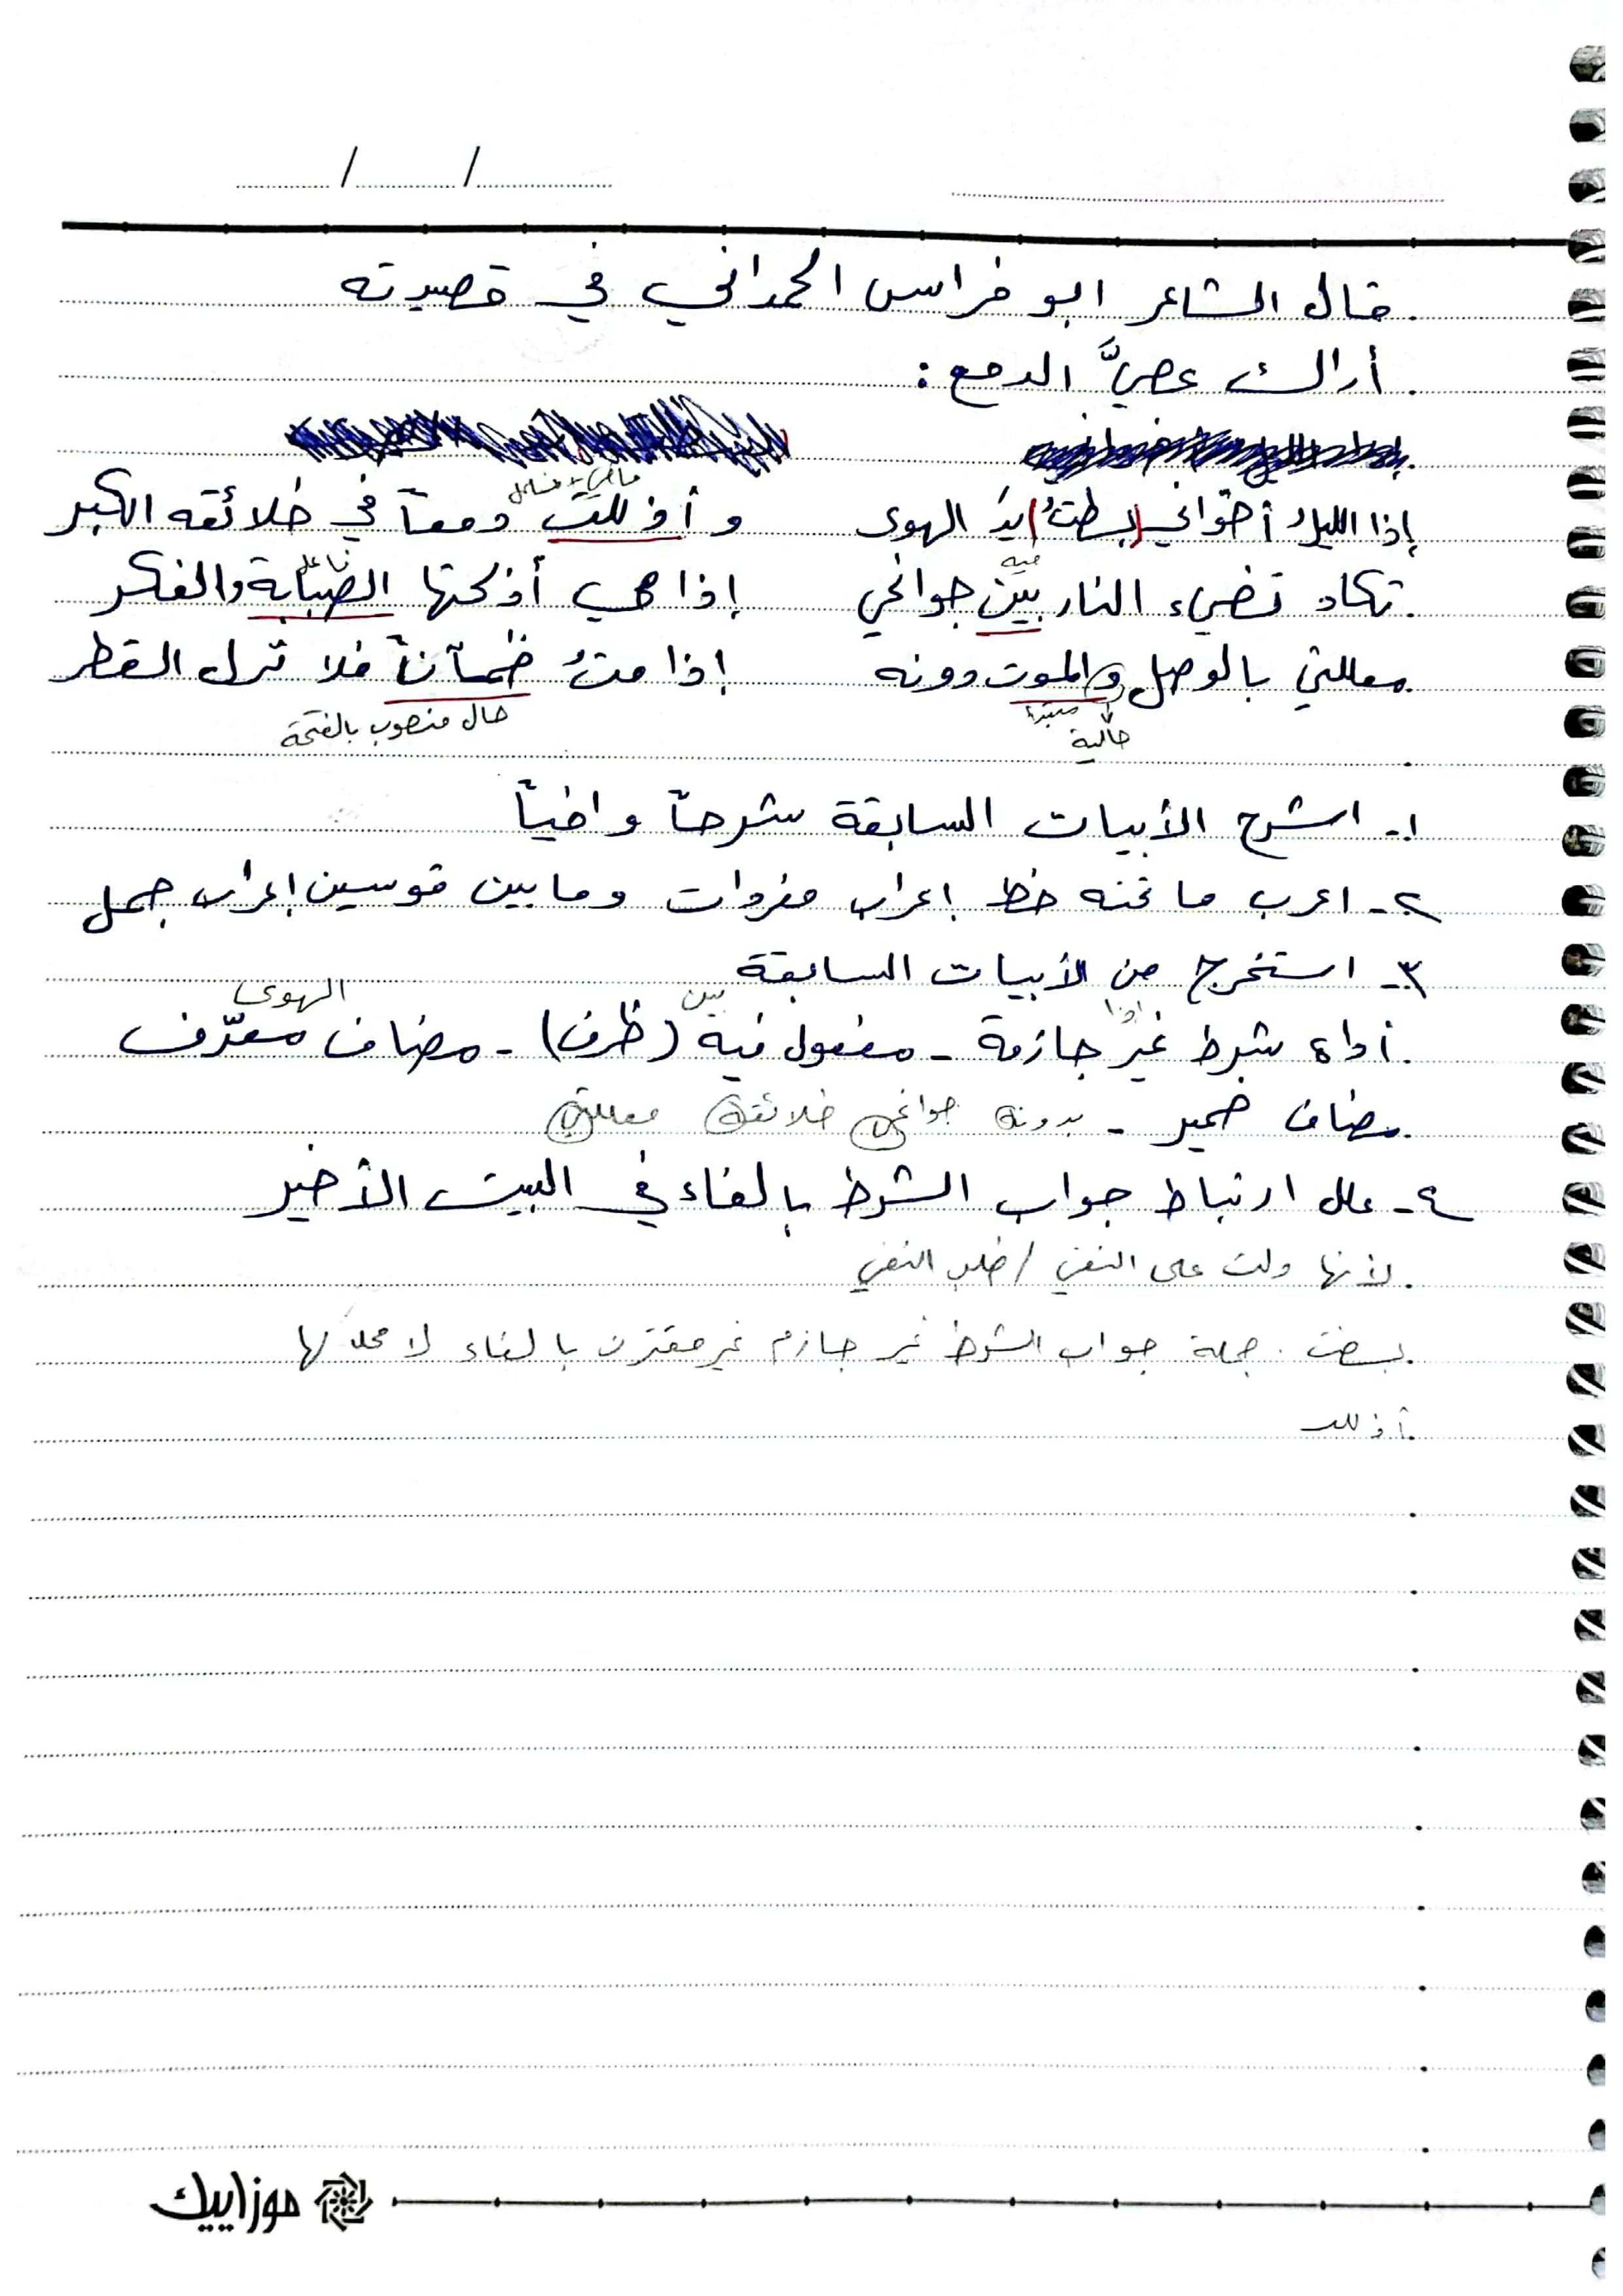 / /
قال الشاعر ابو فراس الحمداني في قصيدته
أراك عصيَّ الدمع :
ماضي + فاعل
إذا الليلُ أضواني (بسطتُ) يدَ الهوى وأذللتُ دمعاً في خلائقه الكبر
فيه فاعل
تكاد تضيء النار بين جوانحي إذا هي أذكتها الصبابة والفكر
معللتي بالوصل والموت دونه إذا متُ ظمآناً فلا نزل القطر
مبتدأ حال منصوب بالفتحة
حالية
١- اشرح الأبيات السابقة شرحاً وافياً
٢- اعرب ما تحته خط إعراب مفردات وما بين قوسين إعراب جمل
٣- استخرج من الأبيات السابقة
إذا بين الهوى
أداة شرط غير جازمة - مفعول فيه (ظرف) - مضاف معرّف
مضاف ضمير - بدونه جوانحي خلائقه معللتي
٤- علل ارتباط جواب الشرط بالفاء في البيت الأخير
لأنها دلت على النفي / طلب النفي
بسطت . جملة جواب الشرط غير جازم غير مقترن بالفاء لا محل لها
أذللت
موزاييك